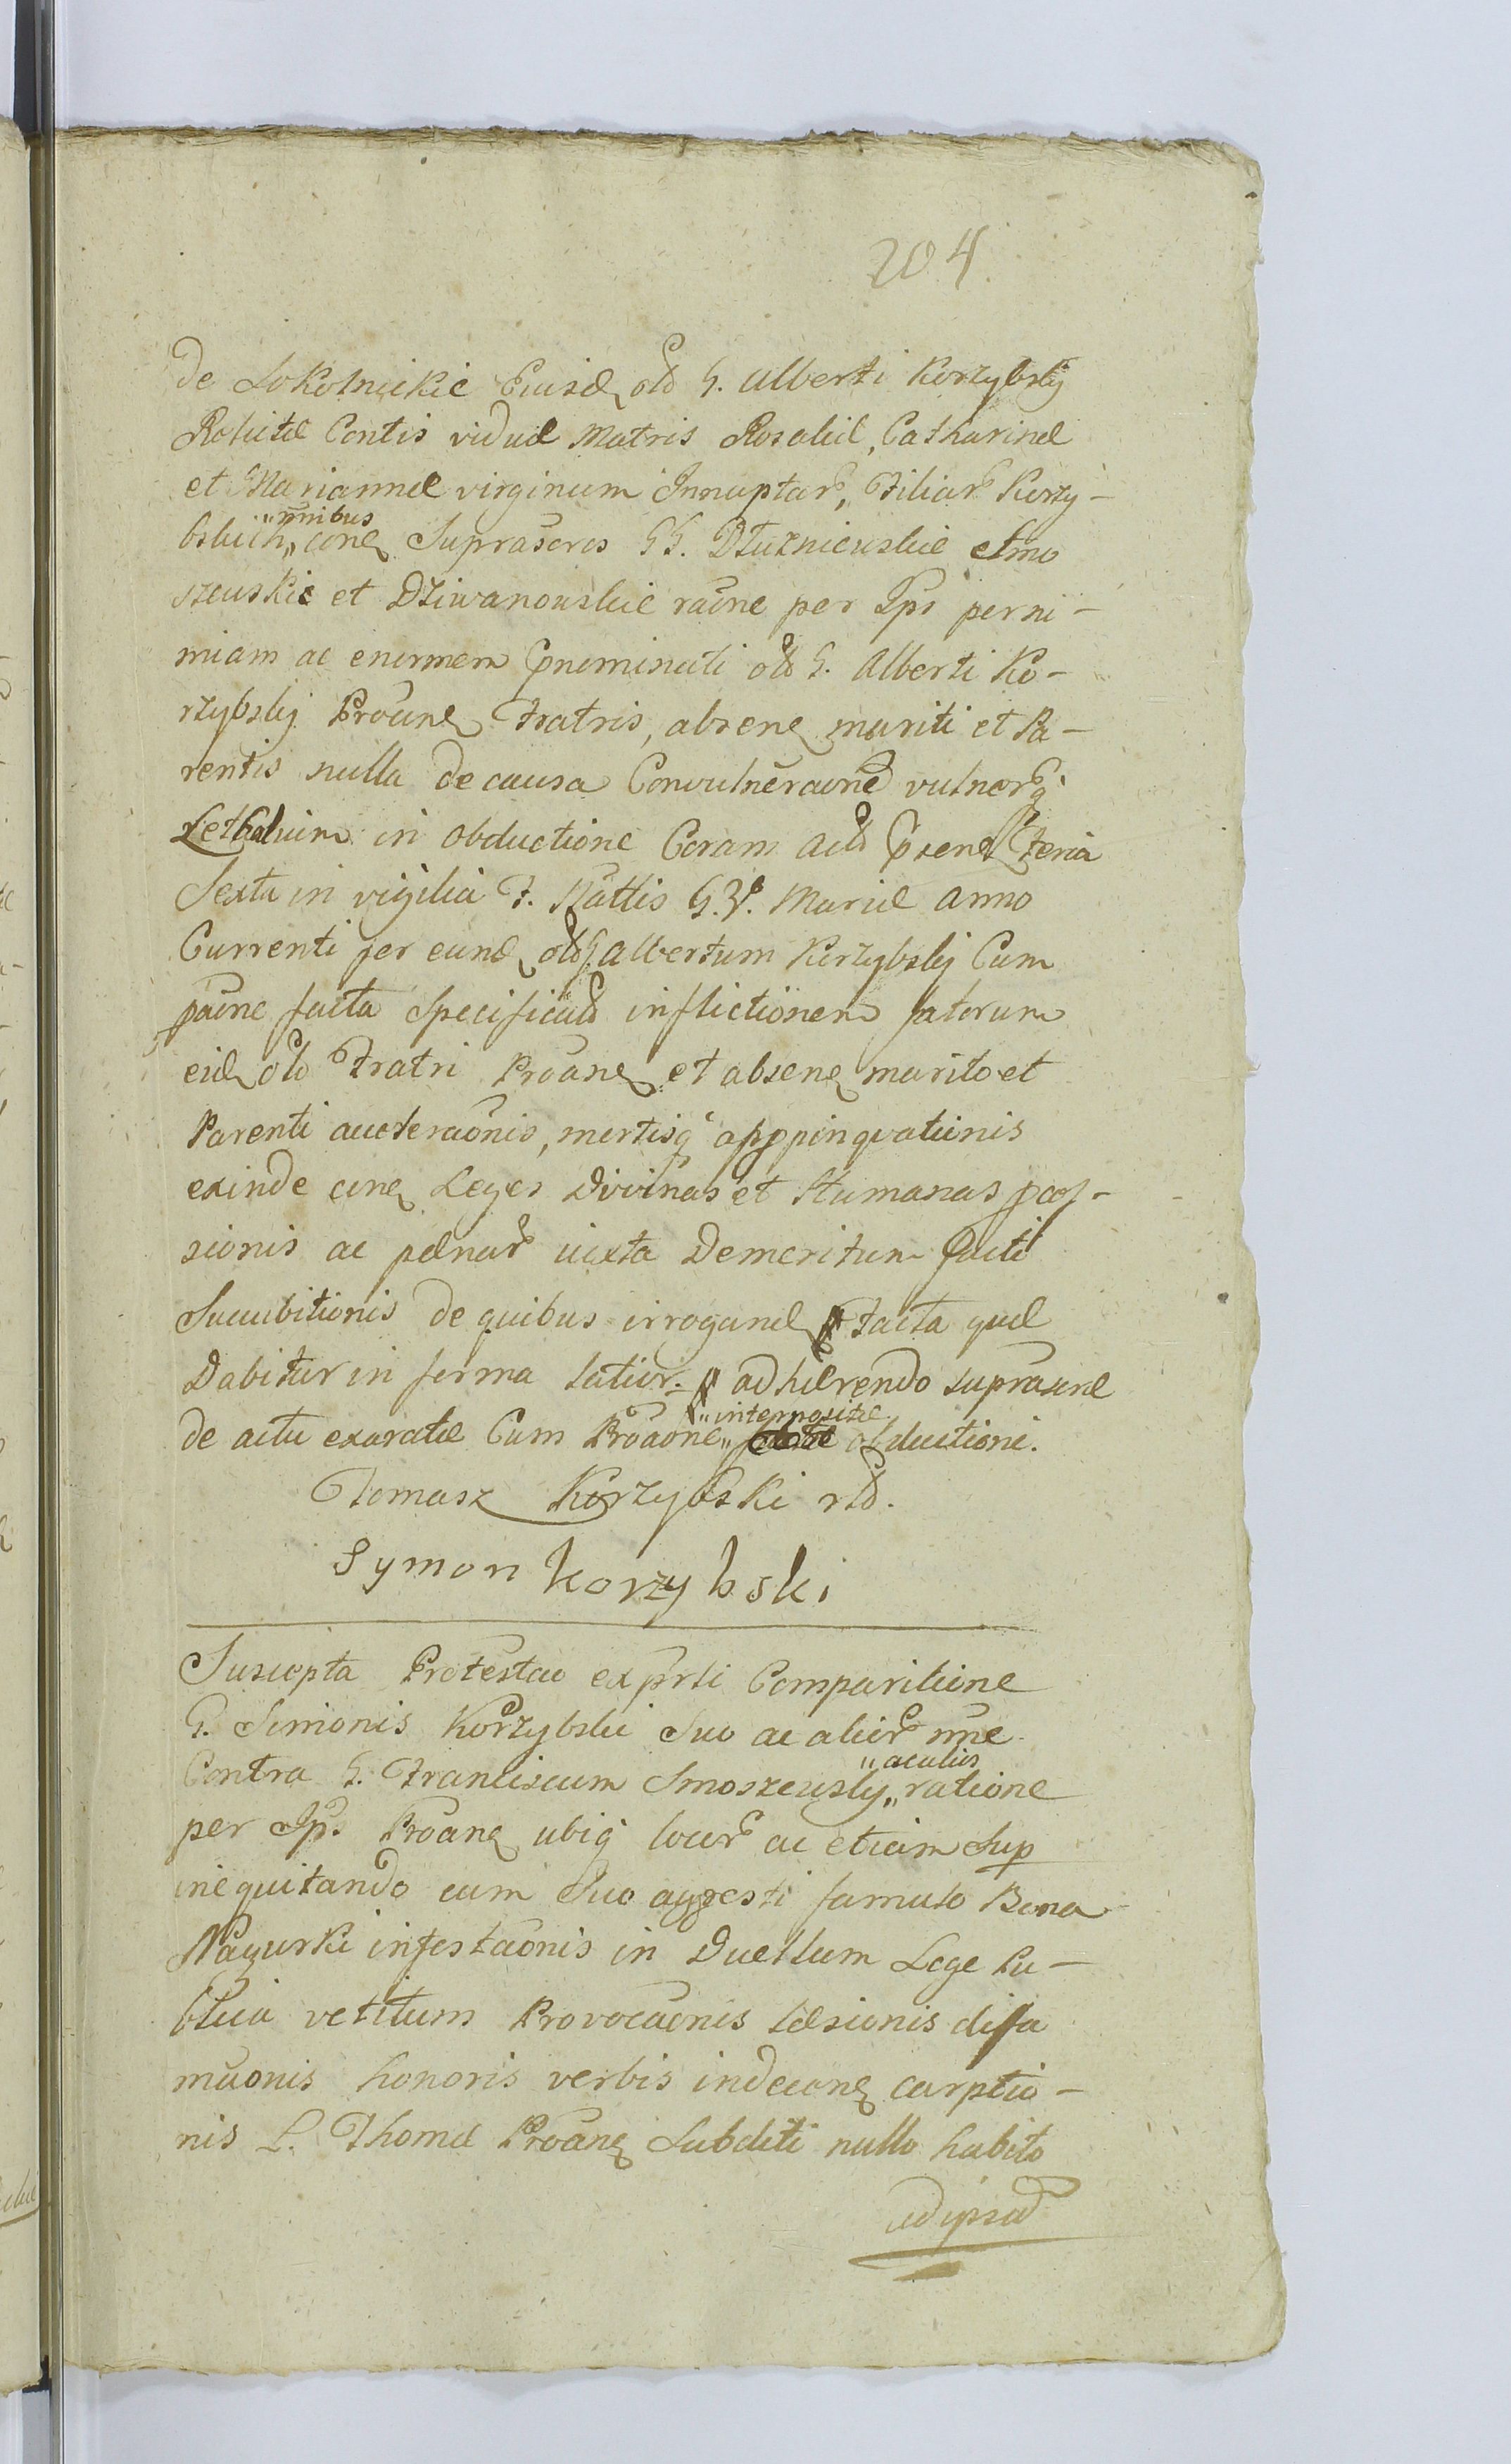 204
de Sokolnickie Eiusd olð G. Alberti Korzybskÿ
Relictæ Contis viduæ Matris Rosaliæ, Catharinæ
et Mariannæ virginum Innuptar, Filiar Korzy-
bskich „nnibus„ cone Suprascros GG. Dłuzniewskie Smo
szewskie et Dziwanowskie raone per Ips perni-
miam ac enormem pnominati olð G. Alberti Ko-
rzybskÿ Proane Fratris, absene mariti et Pa-
rentis nulla de causa Convulneraone vulnerq
Lethalium in obductione Coram actð psene Feria
Sexta in vigilia F. Nattis B. V. Mariæ Anno
Currenti per eund olð G. Albertum Korzybskÿ Cum
paone facta specificatð inflictionem fatorum
eid olð Fratri Proane et absene marito et
Parenti acceleraonis, mortisq appinquationis
exinde cone Leges Divinas et Humanas paes-
sionis ac pænar iuxta Demeritum facti
Succubitionis de quibus irrogand Facta quæ
Dabitur in forma latior. adhærendo suprascræ
de actu exaratæ Cum Proaone „interpositæ„ obductioni.
Tomasz Korzybski rð.
Symon Korzybski
Suscepta Protestao ex psrti Comparitione
G. Simonis Korzybski Suo ac alior nne
Contra G. Franciscum Smoszewskÿ „ac alios„ ratione
per Ips. Proane ubiq locor ac etiam Sup
inequitando cum Suo aggresti famulo Bona
Nagurki infestaonis in Duellum Lege Pu-
blica vetitum Provocaonis læsionis difa
maonis honoris verbis indecone carptio-
nis L. Thomæ Proane Subditi nullo habito
ad ipsað